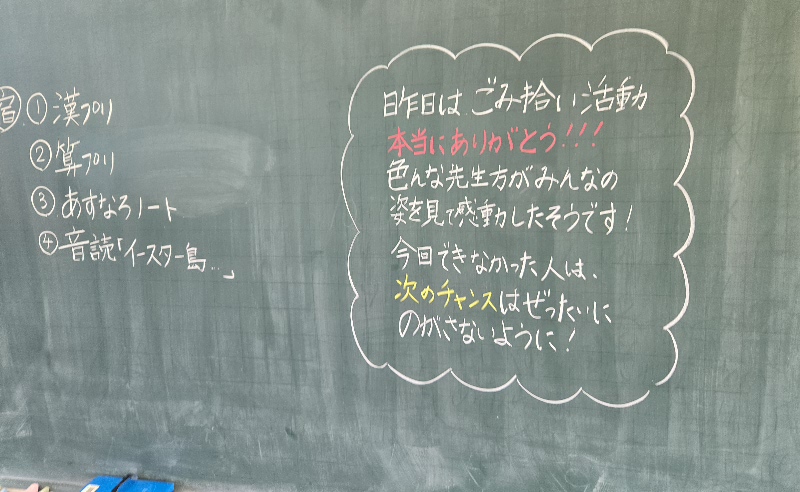 宿 ① 漢プリ
② 算プリ
③ あすなろノート
④ 音読「イースター島…」
昨日は ごみ拾い活動
本当にありがとう!!!
色んな先生方がみんなの
姿を見て感動したそうです!
今回できなかった人は、
次のチャンスはぜったいに
のがさないように!